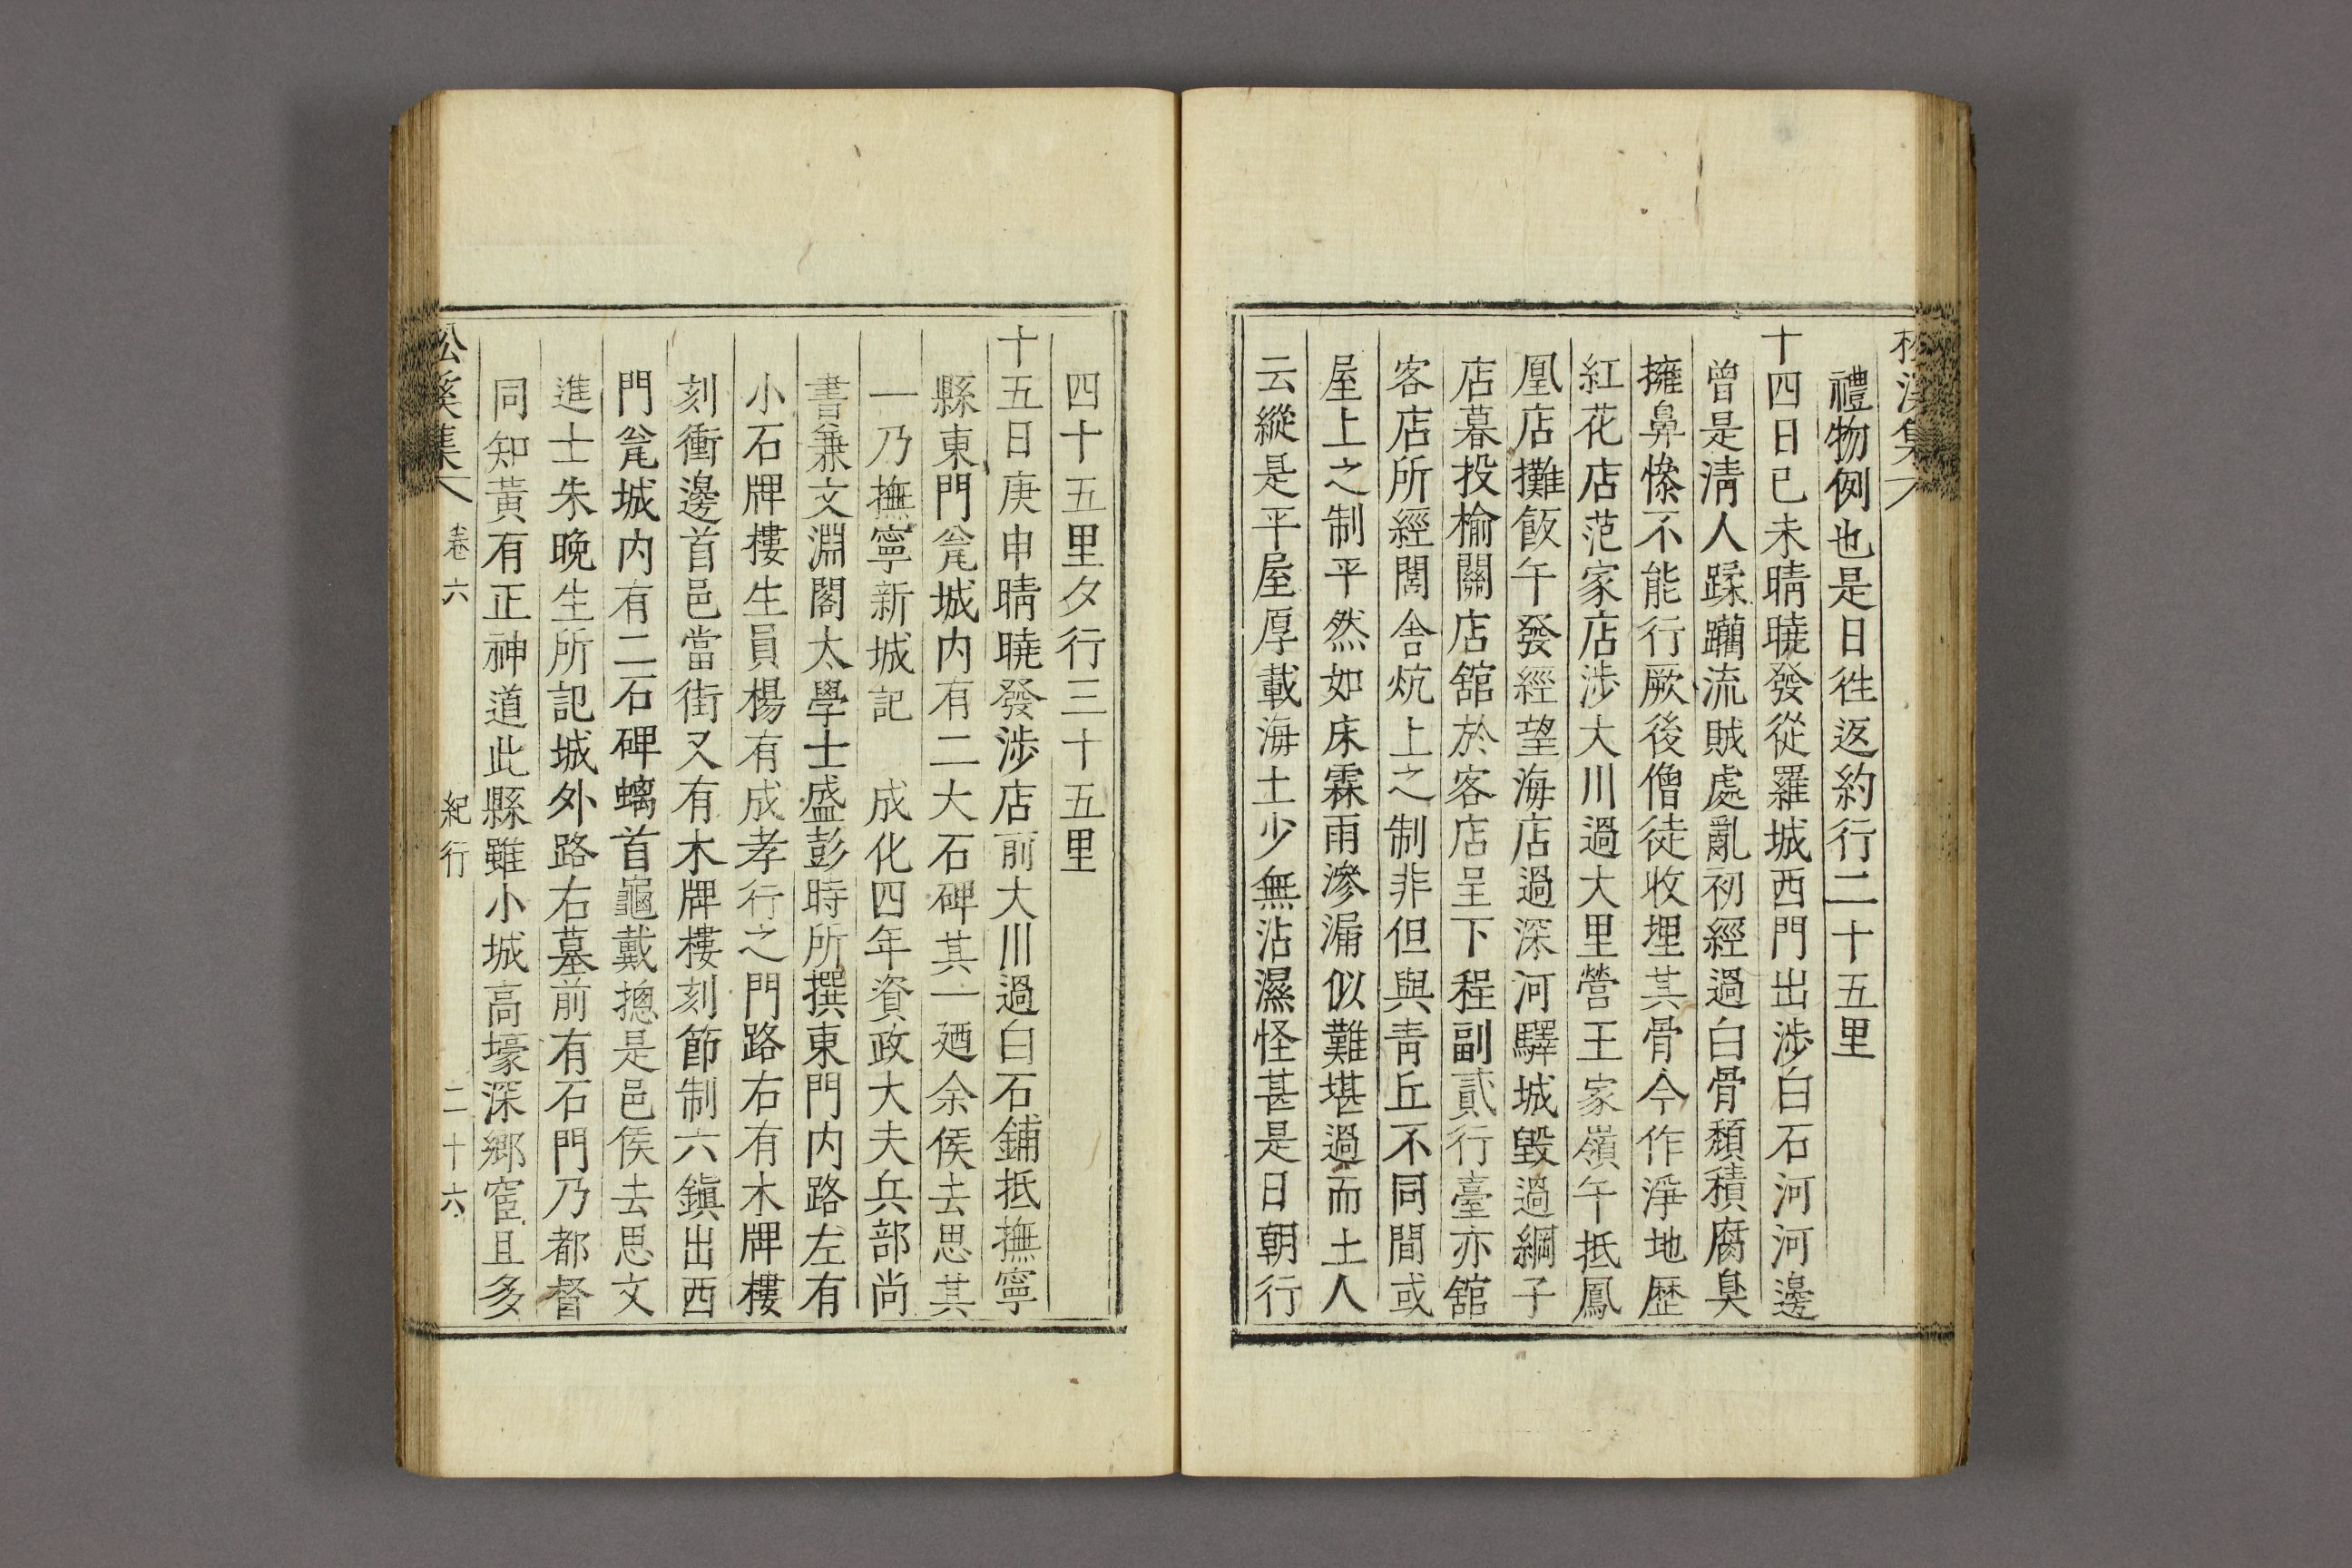 松溪集
禮物例也是日徃返約行二十五里
十四日己未晴曉發從羅城西門出涉白石河河邊
曾是淸人蹂躪流賊處亂初經過白骨頹積腐臭
擁鼻慘不能行厥後僧徒收埋其骨今作淨地歷
紅花店范家店涉大川過大里營王家嶺午抵鳳
凰店攤飯午發經望海店過深河驛城毁過綱子
店暮投楡關店舘於客店呈下程副貳行臺亦舘
客店所經閭舎炕上之制非但與靑丘不同間或
屋上之制平然如床霖雨滲漏似難堪過而土人
云縱是平屋厚載海土少無沾濕怪甚是日朝行
四十五里夕行三十五里
十五日庚申晴曉發涉店前大川過白石鋪抵撫寧
縣東門瓮城内有二大石碑其一廼余侯去思其
一乃撫寧新城記 成化四年資政大夫兵部尚
書兼文淵閣太學士盛彭時所撰東門内路左有
小石牌樓生員楊有成孝行之門路右有木牌樓
刻衝邊首邑當街又有木牌樓刻節制六鎭出西
門瓮城内有二石碑螭首龜戴摠是邑侯去思文
進士朱晩生所記城外路右墓前有石門乃都督
同知黃有正神道此縣雖小城高壕深鄉宦且多
松溪集 卷六 紀行 二十六